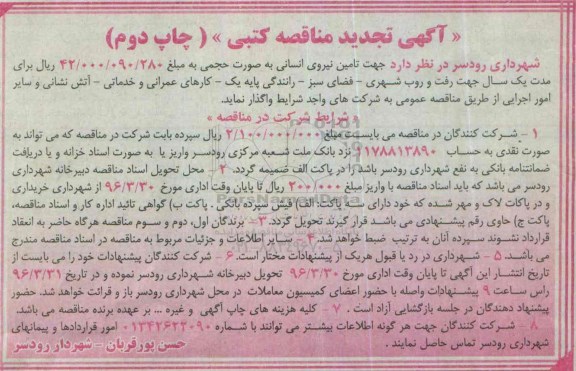 « آگهی تجدید مناقصه کتبی » ( چاپ دوم)
شهرداری رودسر در نظر دارد جهت تامین نیروی انسانی به صورت حجمی به مبلغ ۴۲/۰۰۰/۰۹۰/۲۸۰ ریال برای
مدت یک سال جهت رفت و روب شهری – فضای سبز – رانندگی پایه یک – کارهای عمرانی و خدماتی – آتش نشانی و سایر
امور اجرایی از طریق مناقصه عمومی به شرکت های واجد شرایط واگذار نماید.
« شرایط شرکت در مناقصه »
۱ – شرکت کنندگان در مناقصه می بایست مبلغ ۲/۱۰۰/۰۰۰/۰۰۰ ریال سپرده بابت شرکت در مناقصه که می تواند به
صورت نقدی به حساب ۲۱۷۸۸۱۳۸۹۰ نزد بانک ملت شعبه مرکزی رودسر واریز یا به صورت اسناد خزانه و یا دریافت
ضمانتنامه بانکی به نفع شهرداری رودسر باشد را در پاکت الف ضمیمه گردد. ۲ – محل تحویل اسناد مناقصه دبیرخانه شهرداری
رودسر می باشد که باید اسناد مناقصه با واریز مبلغ ۲۰۰/۰۰۰ ریال تا پایان وقت اداری مورخ ۹۶/۳/۳۰ از شهرداری خریداری
و در پاکات لاک و مهر شده که خود دارای سه پاکت: الف) فیش سپرده بانکی . پاکت ب) گواهی تائید اداره کار و اسناد مناقصه،
پاکت ج) حاوی رقم پیشنهادی می باشد قرار گیرند تحویل گردد. ۳ – برندگان اول، دوم و سوم مناقصه هرگاه حاضر به انعقاد
قرارداد نشوند سپرده آنان به ترتیب ضبط خواهد شد. ۴ – سایر اطلاعات و جزئیات مربوط به مناقصه در اسناد مناقصه مندرج
می باشد. ۵ – شهرداری در رد یا قبول هریک از پیشنهادات مختار است. ۶ – شرکت کنندگان پیشنهادات خود را می بایست از
تاریخ انتشار این آگهی تا پایان وقت اداری مورخ ۹۶/۳/۳۰ تحویل دبیرخانه شهرداری رودسر نموده و در تاریخ ۹۶/۳/۳۱
راس ساعت ۹ پیشنهادات واصله با حضور اعضای کمیسیون معاملات در محل شهرداری رودسر باز و قرائت خواهد شد. حضور
پیشنهاد دهندگان در جلسه بازگشایی آزاد است . ۷ – کلیه هزینه های چاپ آگهی و غیره ... بر عهده برنده مناقصه می باشد.
۸ – شرکت کنندگان جهت هر گونه اطلاعات بیشتر می توانند با شماره ۰۱۳۴۲۶۲۲۰۹۰ امور قراردادها و پیمانهای
شهرداری رودسر تماس حاصل نمایند .
حسن پورقربان – شهردار رودسر